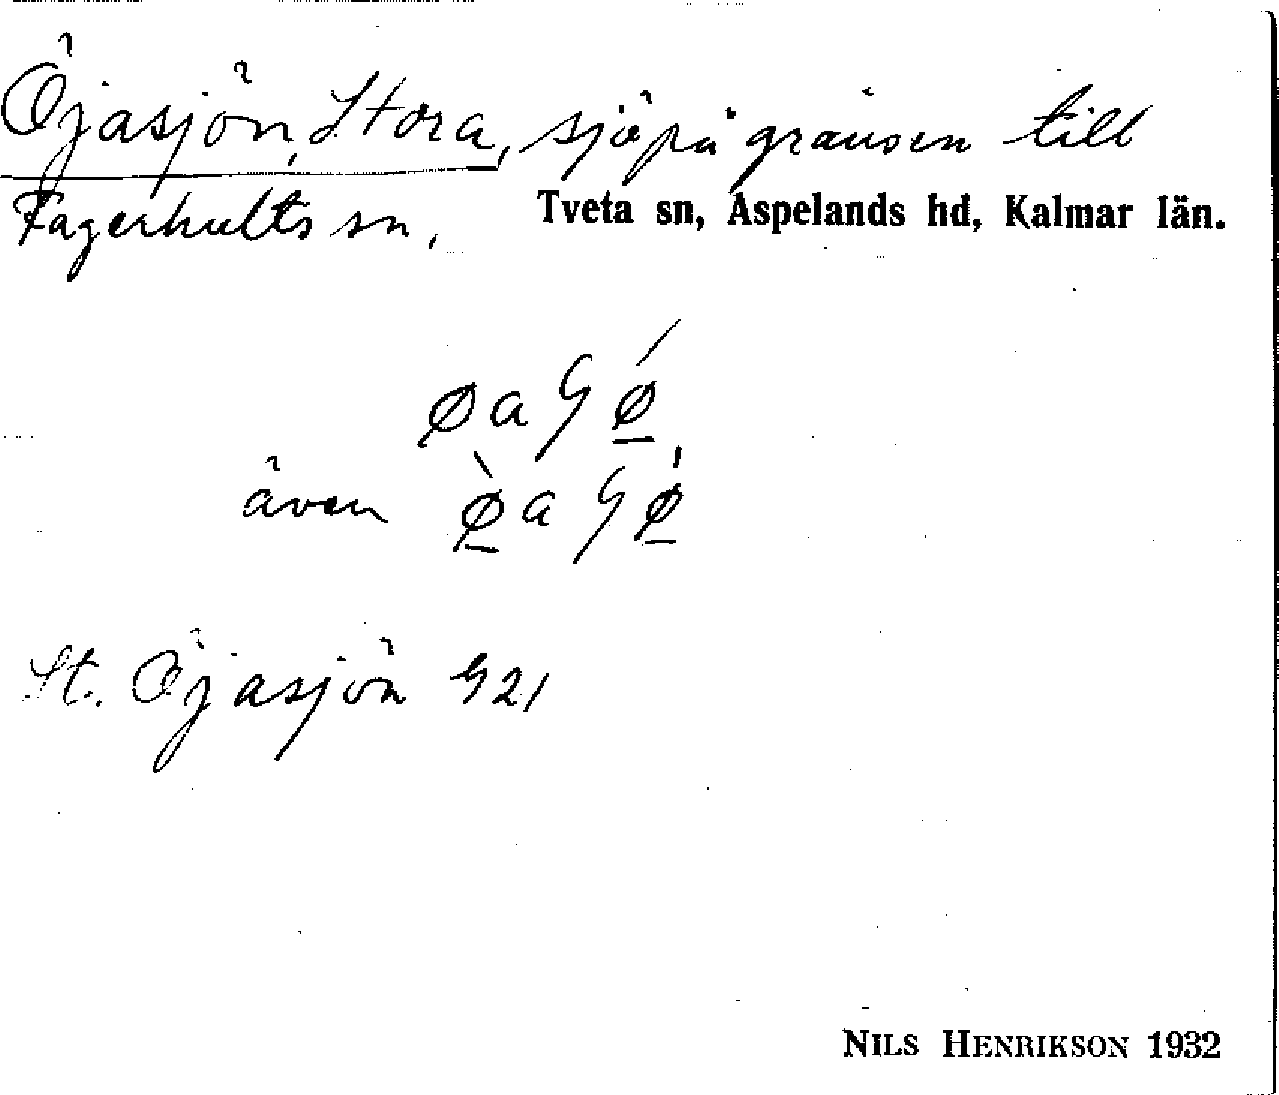 Öjasjön, Stora, sjö på gränsen till
Fagerhults sn, Tveta sn, Aspelands hd, Kalmar län.
även
St. Öjasjön G21
NILS HENRIKSON 1932